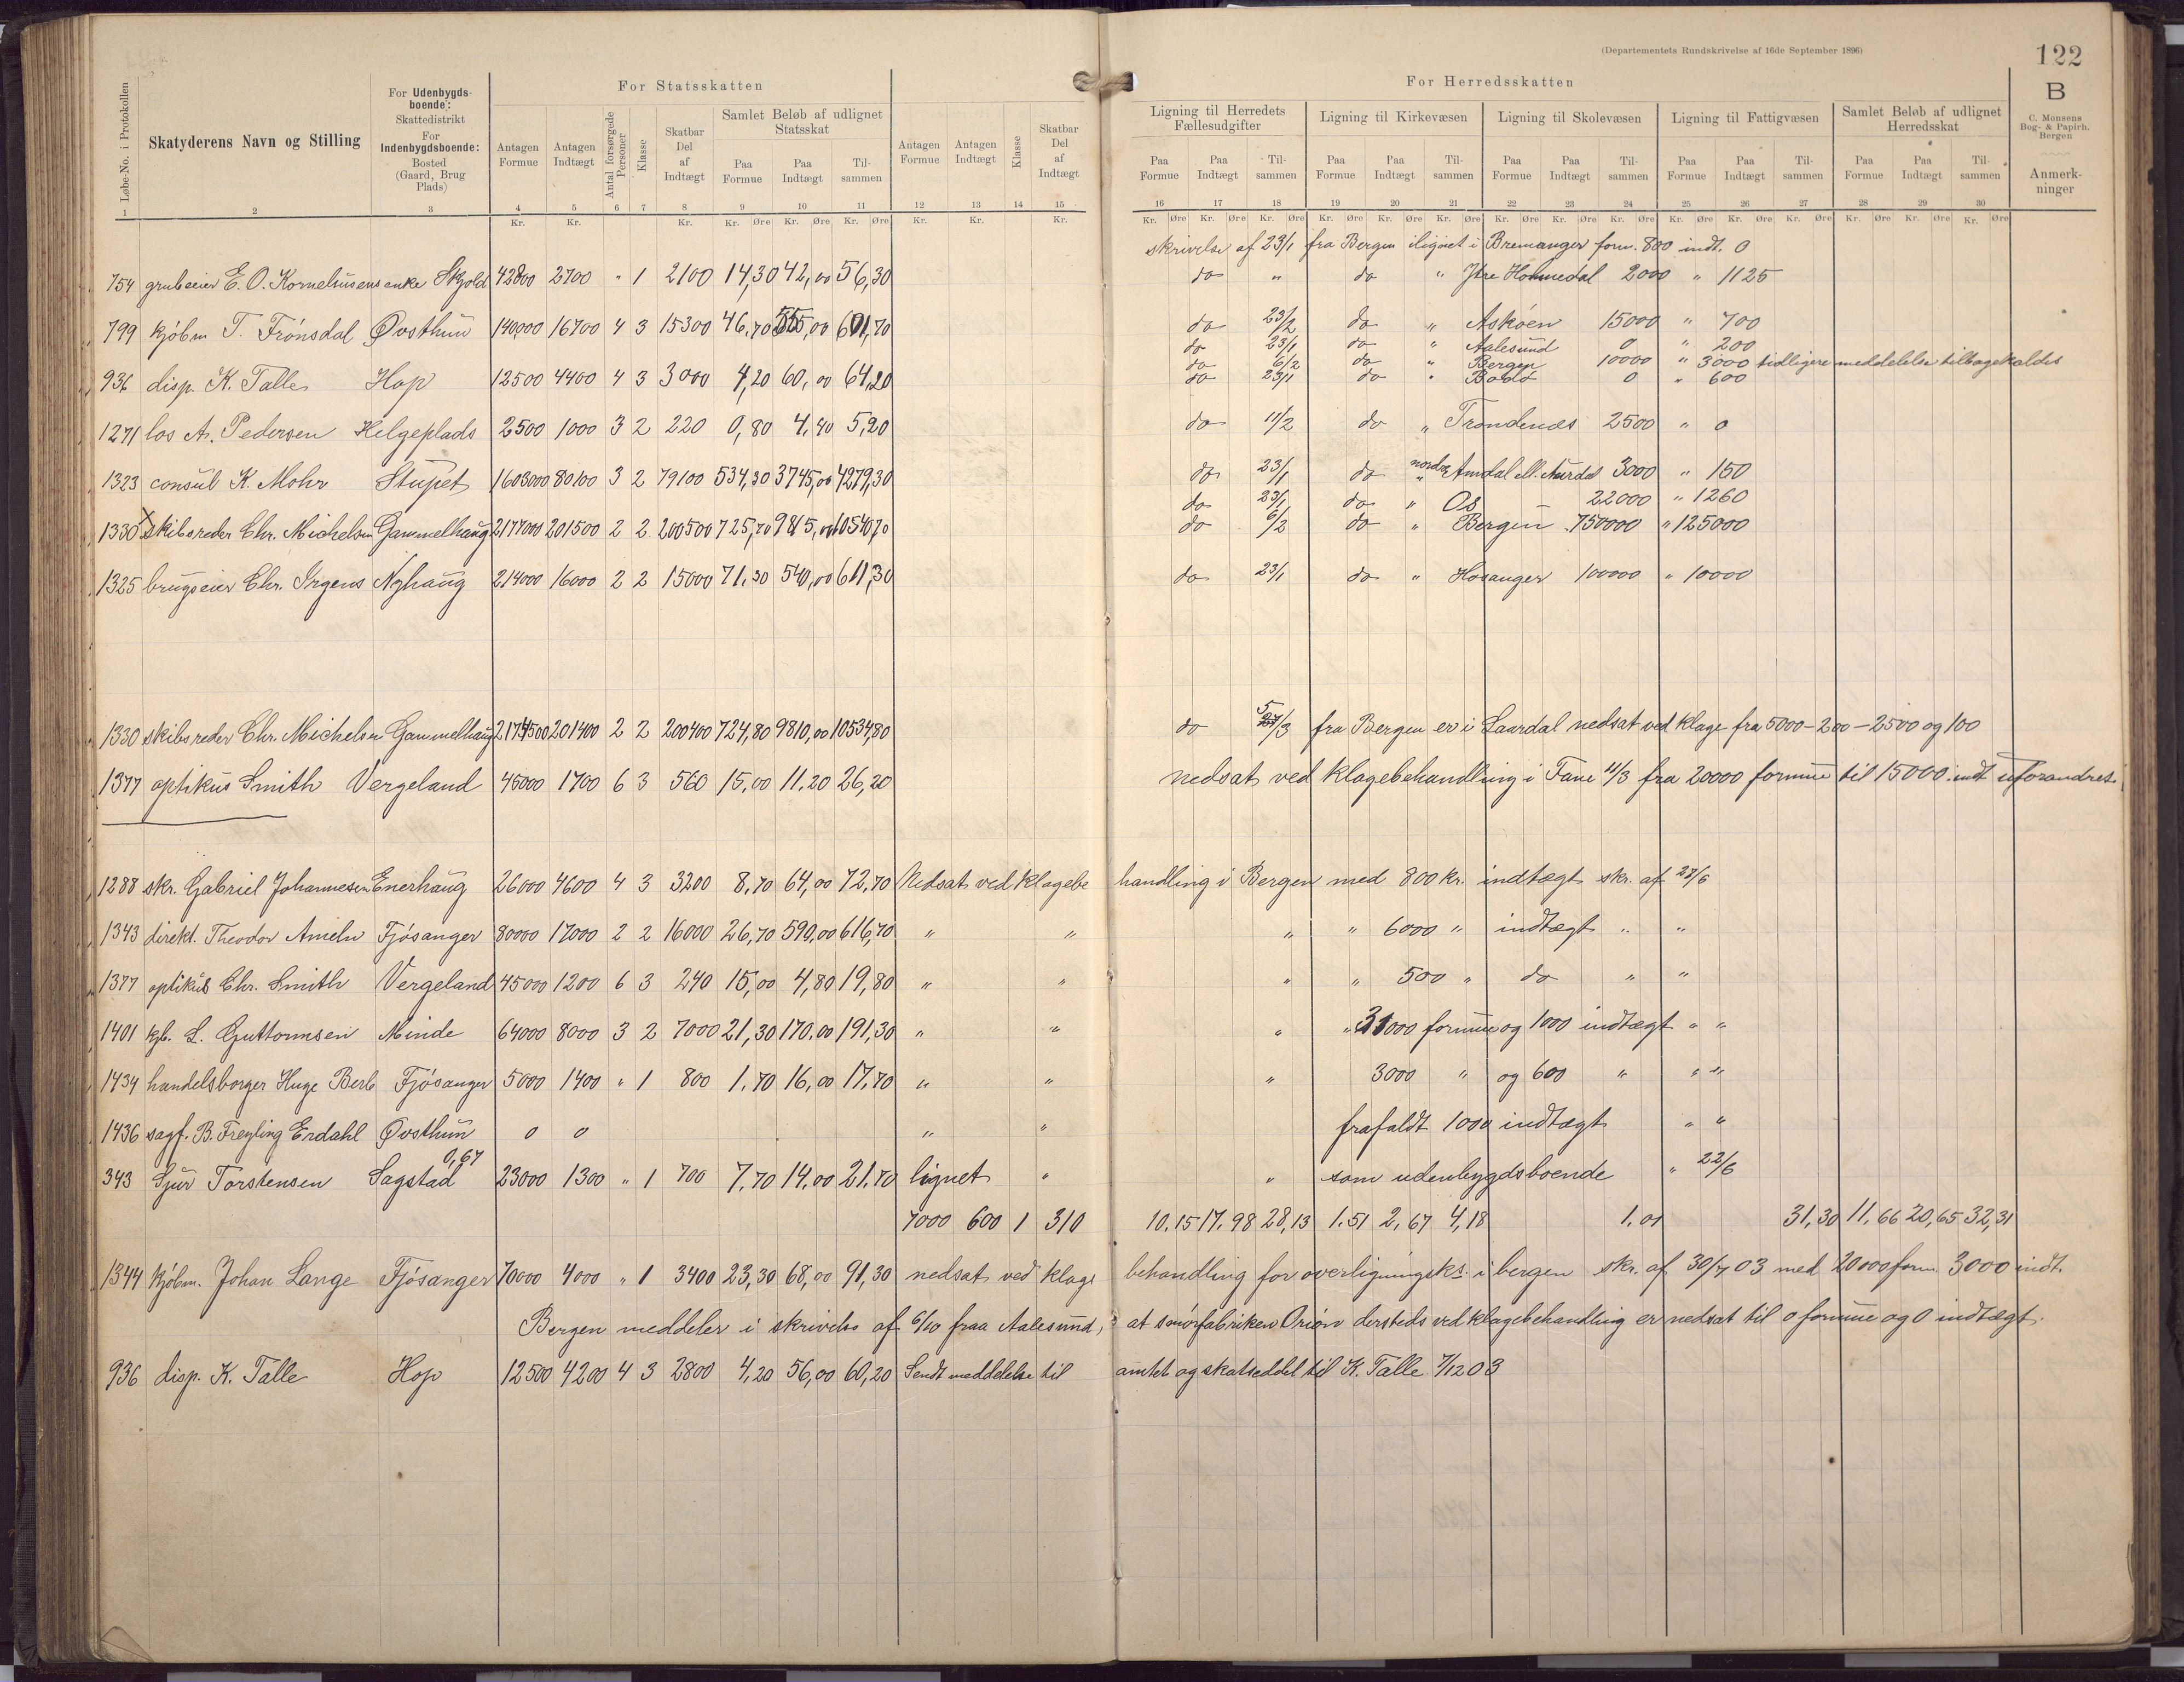 (Departementets Rundskrivelse af 16de September 1896)
122
B
C. Monsens Bog- & Papirh. Bergen
For Statsskatten
For Herredsskatten
Løbe-No. i Protokollen
Skatyderens Navn og Stilling
For Udenbygdsboende: Skattedistrikt For Indenbygdsboende: Bosted (Gaard, Brug Plads)
Antagen Formue
Antagen Indtægt
Antal forsørgede Personer
Klasse
Skatbar Del af Indtægt
Samlet Beløb af udlignet Statsskat
Paa Formue Paa Indtægt Tilsammen
Antagen Formue
Antagen Indtægt
Klasse
Skatbar Del af Indtægt
Ligning til Herredets Fællesudgifter
Paa Formue Paa Indtægt Tilsammen
Ligning til Kirkevæsen
Paa Formue Paa Indtægt Tilsammen
Ligning til Skolevæsen
Paa Formue Paa Indtægt Tilsammen
Ligning til Fattigvæsen
Paa Formue Paa Indtægt Tilsammen
Samlet Beløb af udlignet Herredsskat
Paa Formue Paa Indtægt Tilsammen
Anmerkninger
1 2 3 4 5 6 7 8 9 10 11 12 13 14 15 16 17 18 19 20 21 22 23 24 25 26 27 28 29 30
Kr. Kr. Kr. Kr. Øre Kr. Øre Kr. Øre Kr. Kr. Kr. Kr. Øre Kr. Øre Kr. Øre Kr. Øre Kr. Øre Kr. Øre Kr. Øre Kr. Øre Kr. Øre Kr. Øre Kr. Øre Kr. Øre Kr. Øre Kr. Øre Kr. Øre
skrivelse af 23/1 fra Bergen ilignet i Bremanger form. 800 indt. 0
754 grubeeier E. O. Kornelsusens enke Skjold 42800 2700 " 1 2100 14,30 42,00 56,30 do " do " Ytre Holmedal 2000 " 1125
799 kjøbm T. Frønsdal Øvsthun 140,000 16700 4 3 15300 46,70 555,00 601,70 do 23/2 do " Askøen 15000 " 700
do 23/1 do " Aalesund 0 " 200
do 6/2 do " Bergen 10000 " 3000 tidligere meddelelse tilbagekaldes
936 disp. K. Talle Hop 12500 4400 4 3 3000 4,20 60,00 64,20 do 23/1 do " Bodø 0 " 600
1271 los A. Pedersen Helgeplads 2500 1000 3 2 220 0,80 4,40 5,20 do 11/2 do " Trondenæs 2500 " 0
1323 consul K. Mohr Stupet 1603000 80100 3 2 79100 534,30 3745,00 4279,30 do 23/1 do " nordre Aurdal 3000 " 150
do 23/1 do " Os 22000 " 1260
1330 skibsreder Chr. Michelsen Gammelhaug 2177000 201500 2 2 200500 725,70 9815,00 10540,70 do 6/2 do " Bergen 750000 " 125000
1325 brugseier Chr. Irgens Nyhaug 214000 16000 2 2 15000 71,30 540,00 611,30 do 23/1 do " Hosanger 100000 " 10000
1330 skibsreder Chr. Michelsen Gammelhaug 2174500 201400 2 2 200400 724,80 9810,00 10534,80 do 5/3 fra Bergen er i Laardal nedsat ved klage fra 5000 - 200 - 2500 og 100
1377 optikus Smith Vergeland 45000 1700 6 3 560 15,00 11,20 26,20 nedsat ved klagebehandling i Fane 11/3 fra 20000 formue til 15000 indt uforandret.
1288 skr. Gabriel Johannesen Enerhaug 26000 4600 4 3 3200 8,70 64,00 72,70 Nedsat ved klagebehandling i Bergen med 800 kr. indtægt skr. af 22/6
1343 direkt. Theodor Ameln Fjøsanger 80000 17000 2 2 16000 26,70 590,00 616,70 " " " " 6000 " indtægt " "
1377 optikus Chr. Smith Vergeland 45000 1200 6 3 240 15,00 4,80 19,80 " " " " 500 " do " "
1401 kjb. L. Guttormsen Minde 64000 8000 3 2 7000 21,30 170,00 191,30 " " " " 31000 formue og 1000 indtægt " "
1434 handelsborger Huge Berle Fjøsanger 5000 1400 " 1 800 1,70 16,00 17,70 " " " 3000 " og 600 " " "
1436 sagf. B. Freyling Erdahl Øvsthun 0 0 " " frafaldt 1000 indtægt " "
343 Sjur Torstensen Sagstad 0,67 23000 1300 " 1 700 7,70 14,00 21,70 lignet " " som udenbygdsboende " 22/6
7000 600 1 310 10,15 17,98 28,13 1,51 2,67 4,18 1,01 31,30 11,66 20,65 32,31
1344 Kjøbm. Johan Lange Fjøsanger 70000 4000 " 1 3400 23,30 68,00 91,30 nedsat ved klagebehandling for overligningsks. i bergen skr. af 30/7 03 med 20000 form. 3000 indt.
Bergen meddeler i skrivelse af 6/10 fraa Aalesund, at smørfabriken Orion dersteds ved klagebehandling er nedsat til 0 formue og 0 indtægt.
936 disp. K. Talle Hop 12500 4200 4 3 2800 4,20 56,00 60,20 Sendt meddelelse til amtet og skatseddel til K. Talle 7/12 03